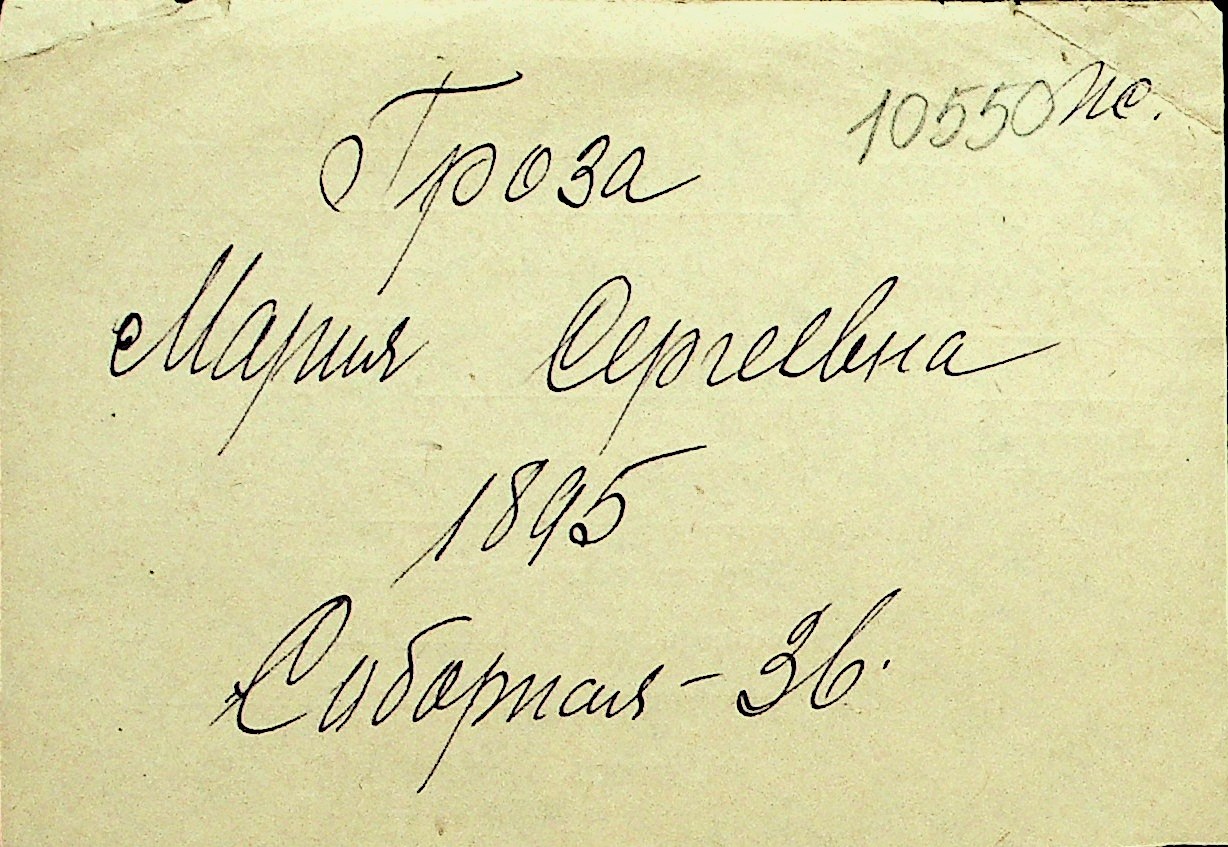 10550 пс.
Гроза
Мария Сергеевна
1895
Соборная - 36.